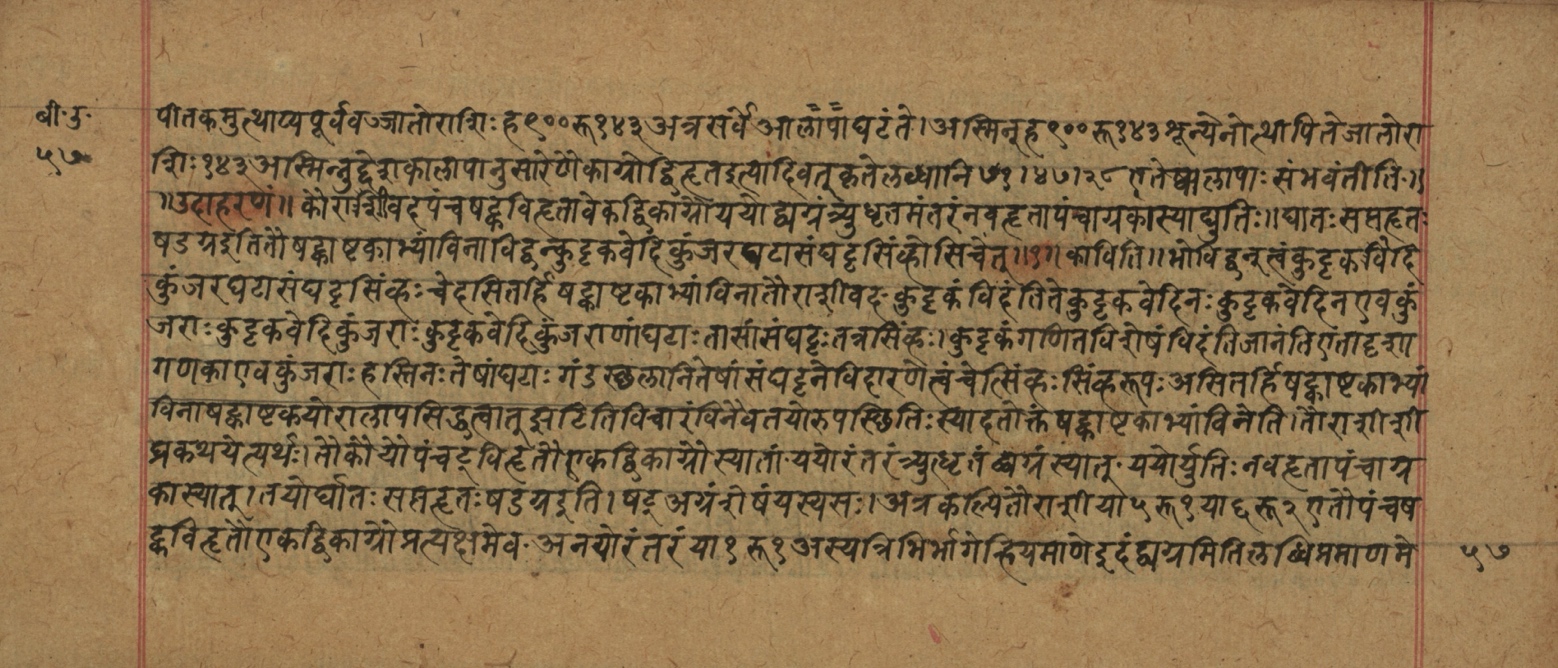 बी॰उ॰
५७
पीतकमुत्थाप्यपूर्ववज्जातोराशिः ह९००रू१४३ अत्रसर्वेआलापाघटंते।अस्मिन्ह९००रू१४३शून्येनोत्थापितेजातोरा
शिः१४३अस्मिन्नुद्देशकालापानुसारेणैकाग्रोद्विहृतइत्यादिवत्कृतेलब्धानि७१।४७।२८एतेष्वालापाःसंभवंतीति॥
॥उदाहरणं॥कौराशीवदपंचषट्कविहृतावेकद्विकाग्रौययोर्द्व्यग्रंत्र्युधृतमंतरंनवहृतापंचाग्रकास्याद्युतिः॥घातःसप्तहृतः
षडग्रइतितौषट्काष्टकाभ्यांविनाविद्वन्कुट्टकवेदिकुंजरघटासंघट्टसिंव्होसिचेत्॥१॥काविति॥भोविद्वन्त्वंकुट्टकवेदि
कुंजरघटासंघट्टसिंव्हःचेदसितर्हिषट्काष्टकाभ्यांविनातौराशीवद॰कुट्टकंविदंतितेकुट्टकवेदिनःकुट्टकवेदिनएवकुं
जराःकुट्टकवेदिकुंजराःकुट्टकवेदिकुंजराणांघटाःतासांसंघट्टःतत्रसिंव्हः।कुट्टकंगणितविशेषंविदंतिजानंतिएतादृशा
गणकाएवकुंजराःहस्तिनःतेषांघटाःगंडस्छलानितेषांसंघट्टनेविदारणेत्वंचेत्सिंव्हःसिंव्हरूपःअसितर्हिषट्काष्टकाभ्यां
विनाषट्काष्टकयोरालापसिद्धत्वात्झटितिविचारंविनैवतयोरुपस्छितिःस्यादतोक्तंषट्काष्टकाभ्यांविनेति।तौराशीशी
घ्रकथयेत्यर्थः।तौकौयौपंचषट्विहृतौएकद्विकाग्रौस्यातां॰ययोरंतरंत्र्युधृतंद्व्यग्रंस्यात्॰ययोर्युतिःनवहृतापंचाग्र
कास्यात्।तयोर्घातःसप्तहृतःषडग्रइति।षट्अग्रंशेषंयस्यसः।अत्रकल्पितौराशीया५रू१या६रू२एतौपंचष
ट्कविहृतौएकद्विकाग्रौप्रत्यक्षमेव॰अनयोरंतरंया१रू१अस्यत्रिभिर्भागेन्हियमाणेइदंद्व्यग्रमितिलब्धिप्रमाणमे
५७